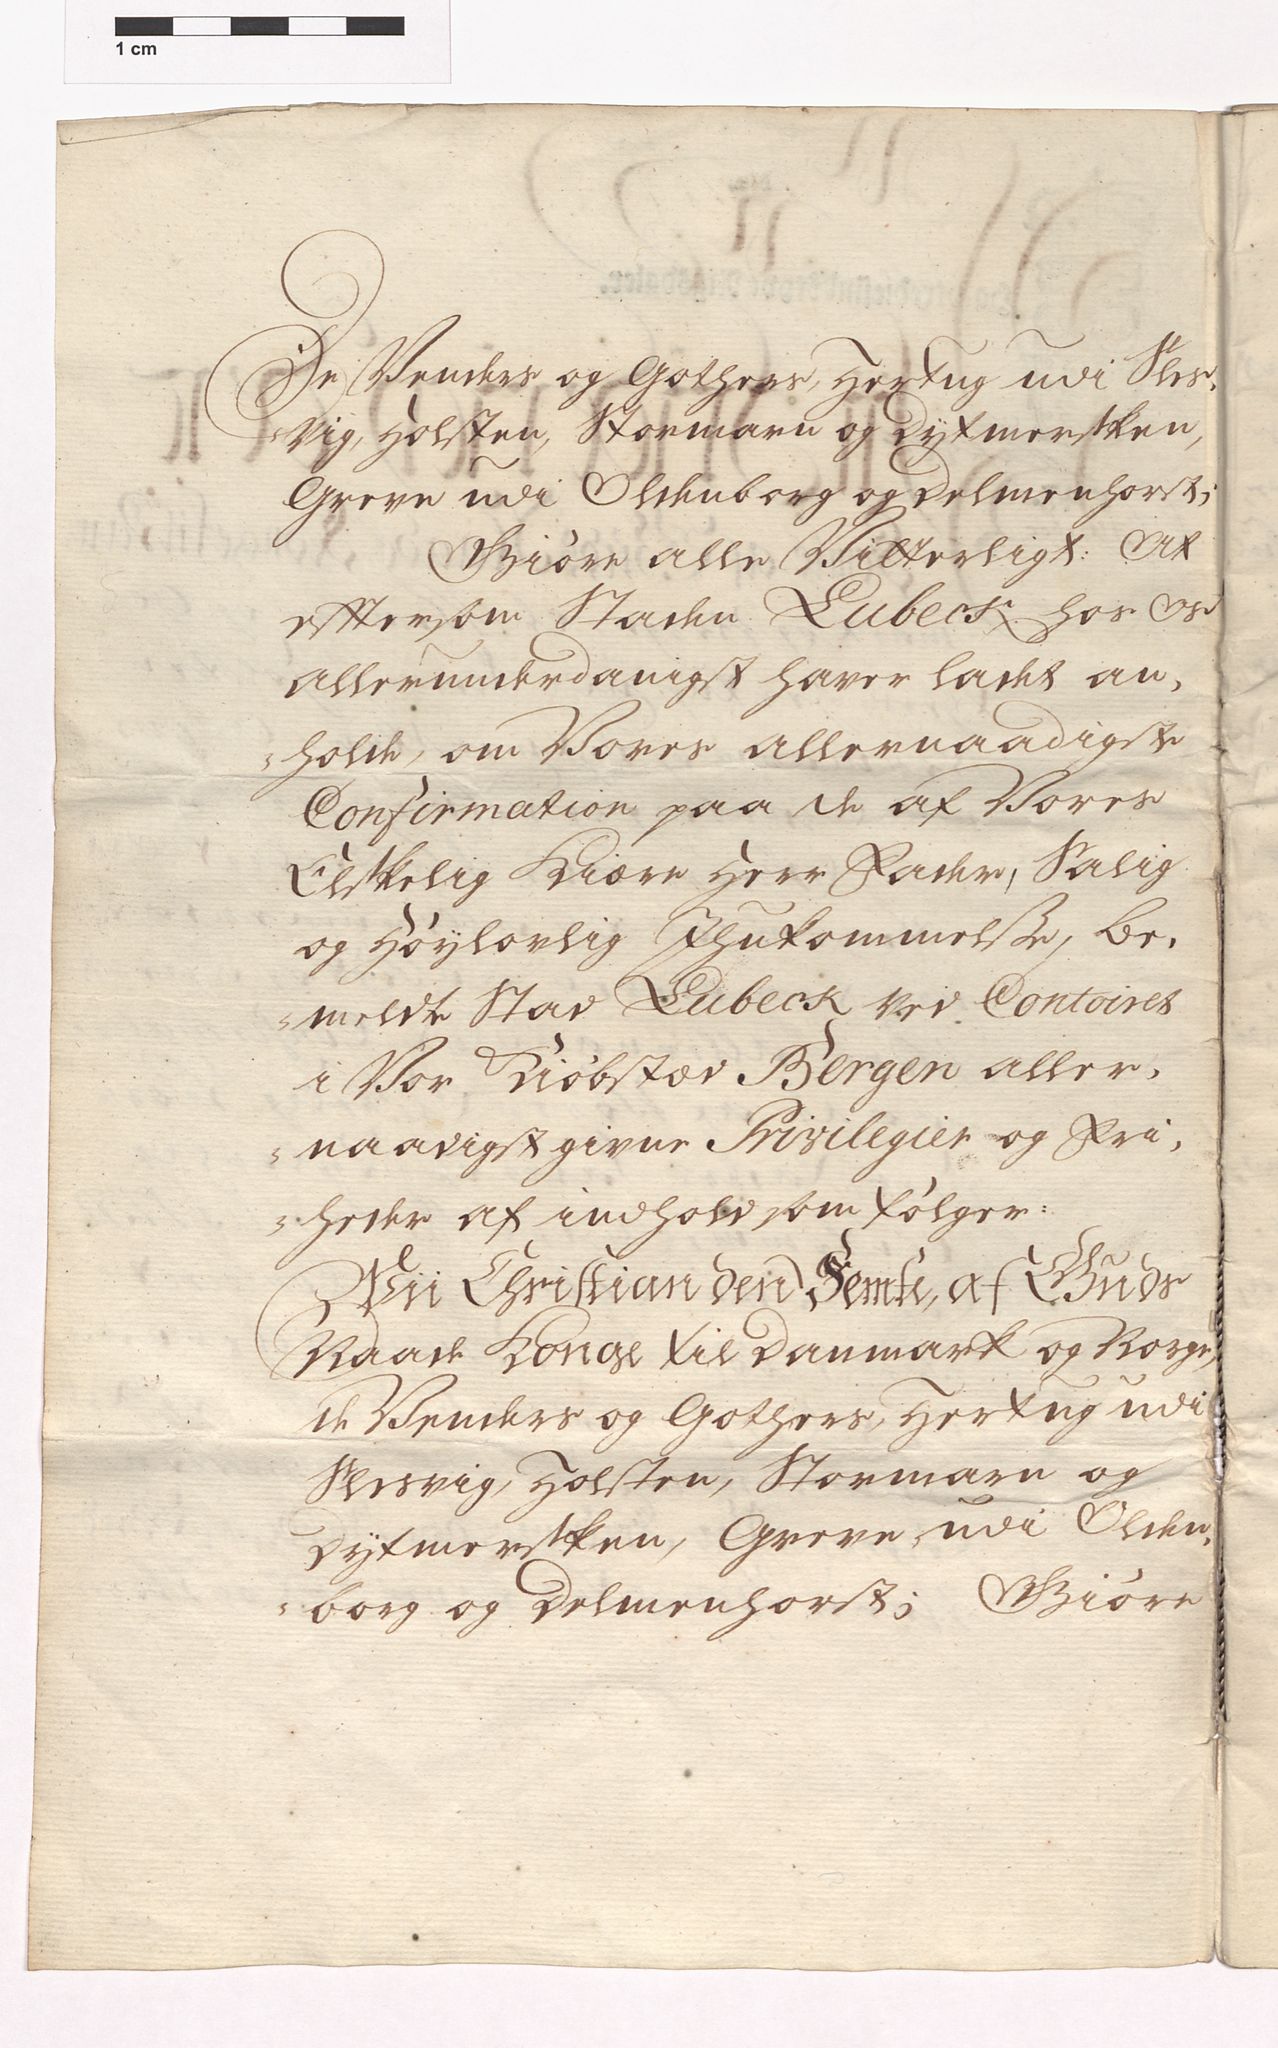 1 cm
De Venders og Gothers, Hertug udi Sles-
-vig, Holsten, Stormarn og Dytmersken,
Greve udi Oldenborg og Delmenhorst;
Giöre alle Vitterligt: At
eftersom Staden Lubeck hos Os
allerunderdanigst haver ladet an-
-holde, om Vores allernaadigste
Confirmation paa de af Vores
Elskelig Kiære Herr Fader, Salig
og Höylovlig Ihukommelse, be-
-meldte Stad Lubeck ved Contoiret
i Vor Kiöbstæd Bergen aller-
-naadigst givne Privilegier og Fri-
-heder af indhold som fölger:
Wii Christian den Femte, af Guds
Naade Konge til Danmark og Norge,
de Venders og Gothers, Hertug udi
Slesvig, Holsten, Stormarn og
Dytmersken, Greve udi Olden-
-borg og Delmenhorst; Giöre